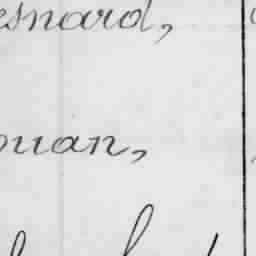 esnard,
ouan,